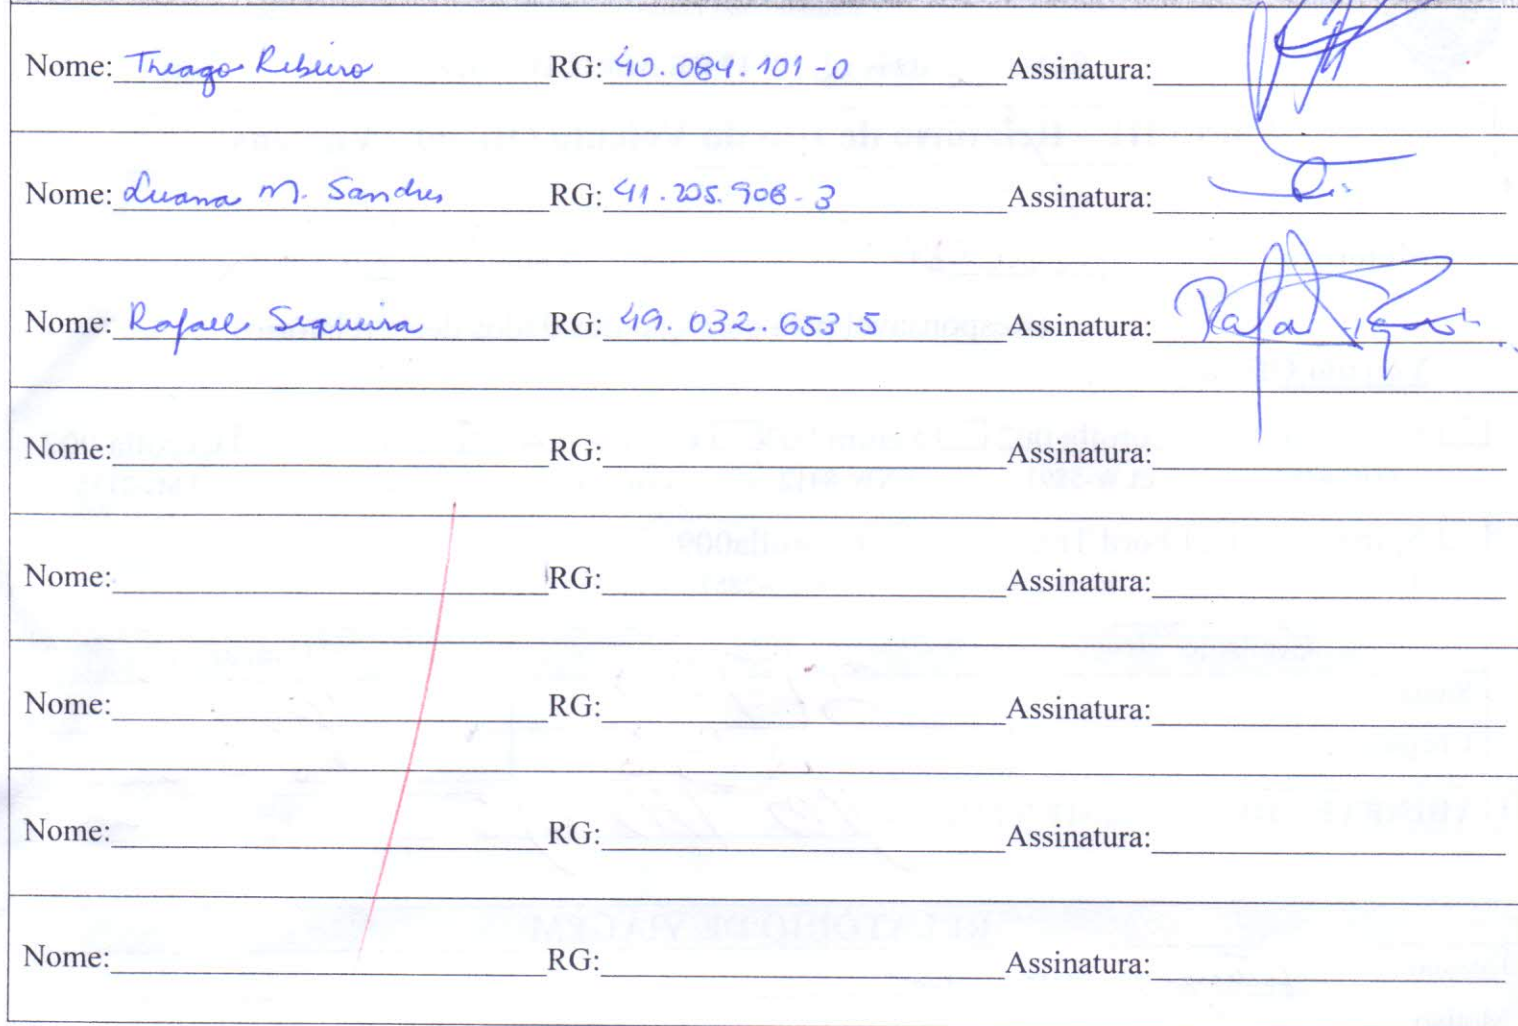 Nome: Thiago Ribeiro RG: 40.084.101-0 Assinatura:
Nome: Luana M. Sandres RG: 41.205.908-3 Assinatura:
Nome: Rafael Sequeira RG: 49.032.653-5 Assinatura: Rafael
Nome: RG: Assinatura:
Nome: RG: Assinatura:
Nome: RG: Assinatura:
Nome: RG: Assinatura:
Nome: RG: Assinatura:
RELATÓRIO DE VIAGEM